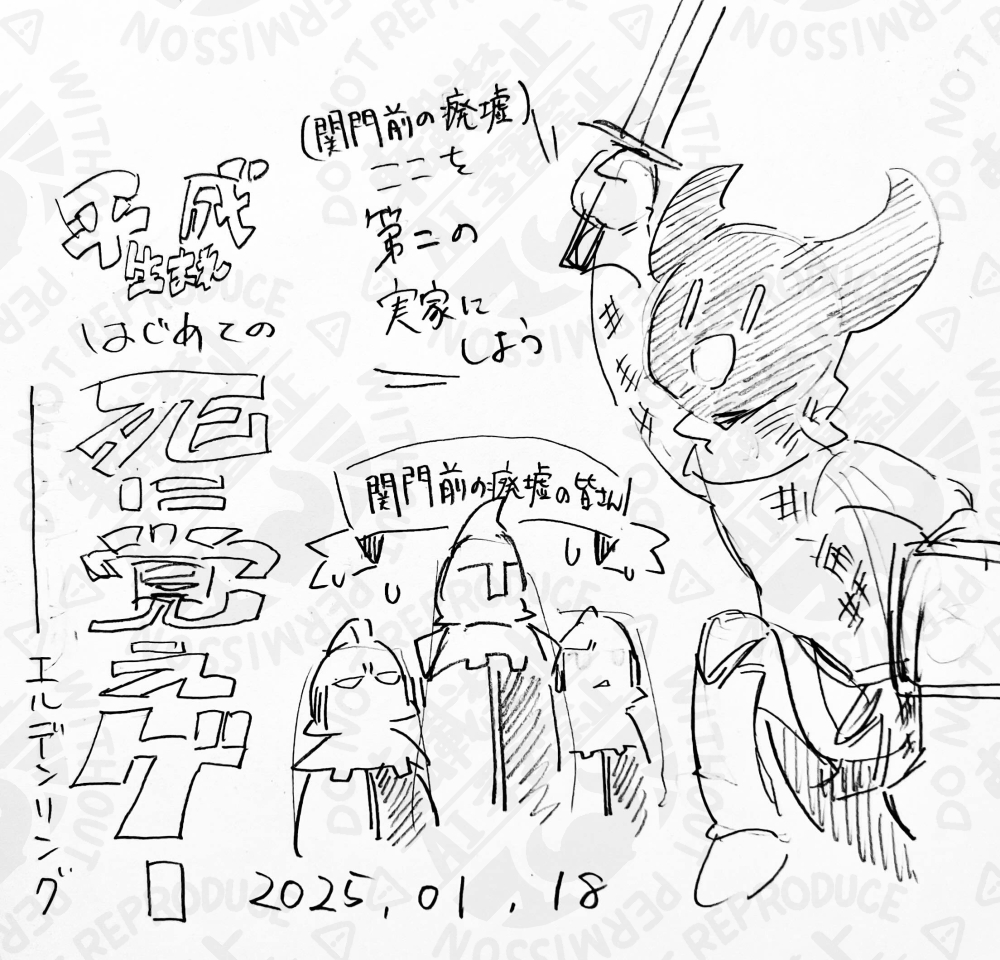 平成
生まれ
はじめての
死に覚えゲ
ー
エルデンリング
(関門前の廃墟)
ここを
第二の
実家に
しよう
関門前の廃墟の皆さん
2025.01.18
DO NOT REPRODUCE
WITHOUT
PERMISSION